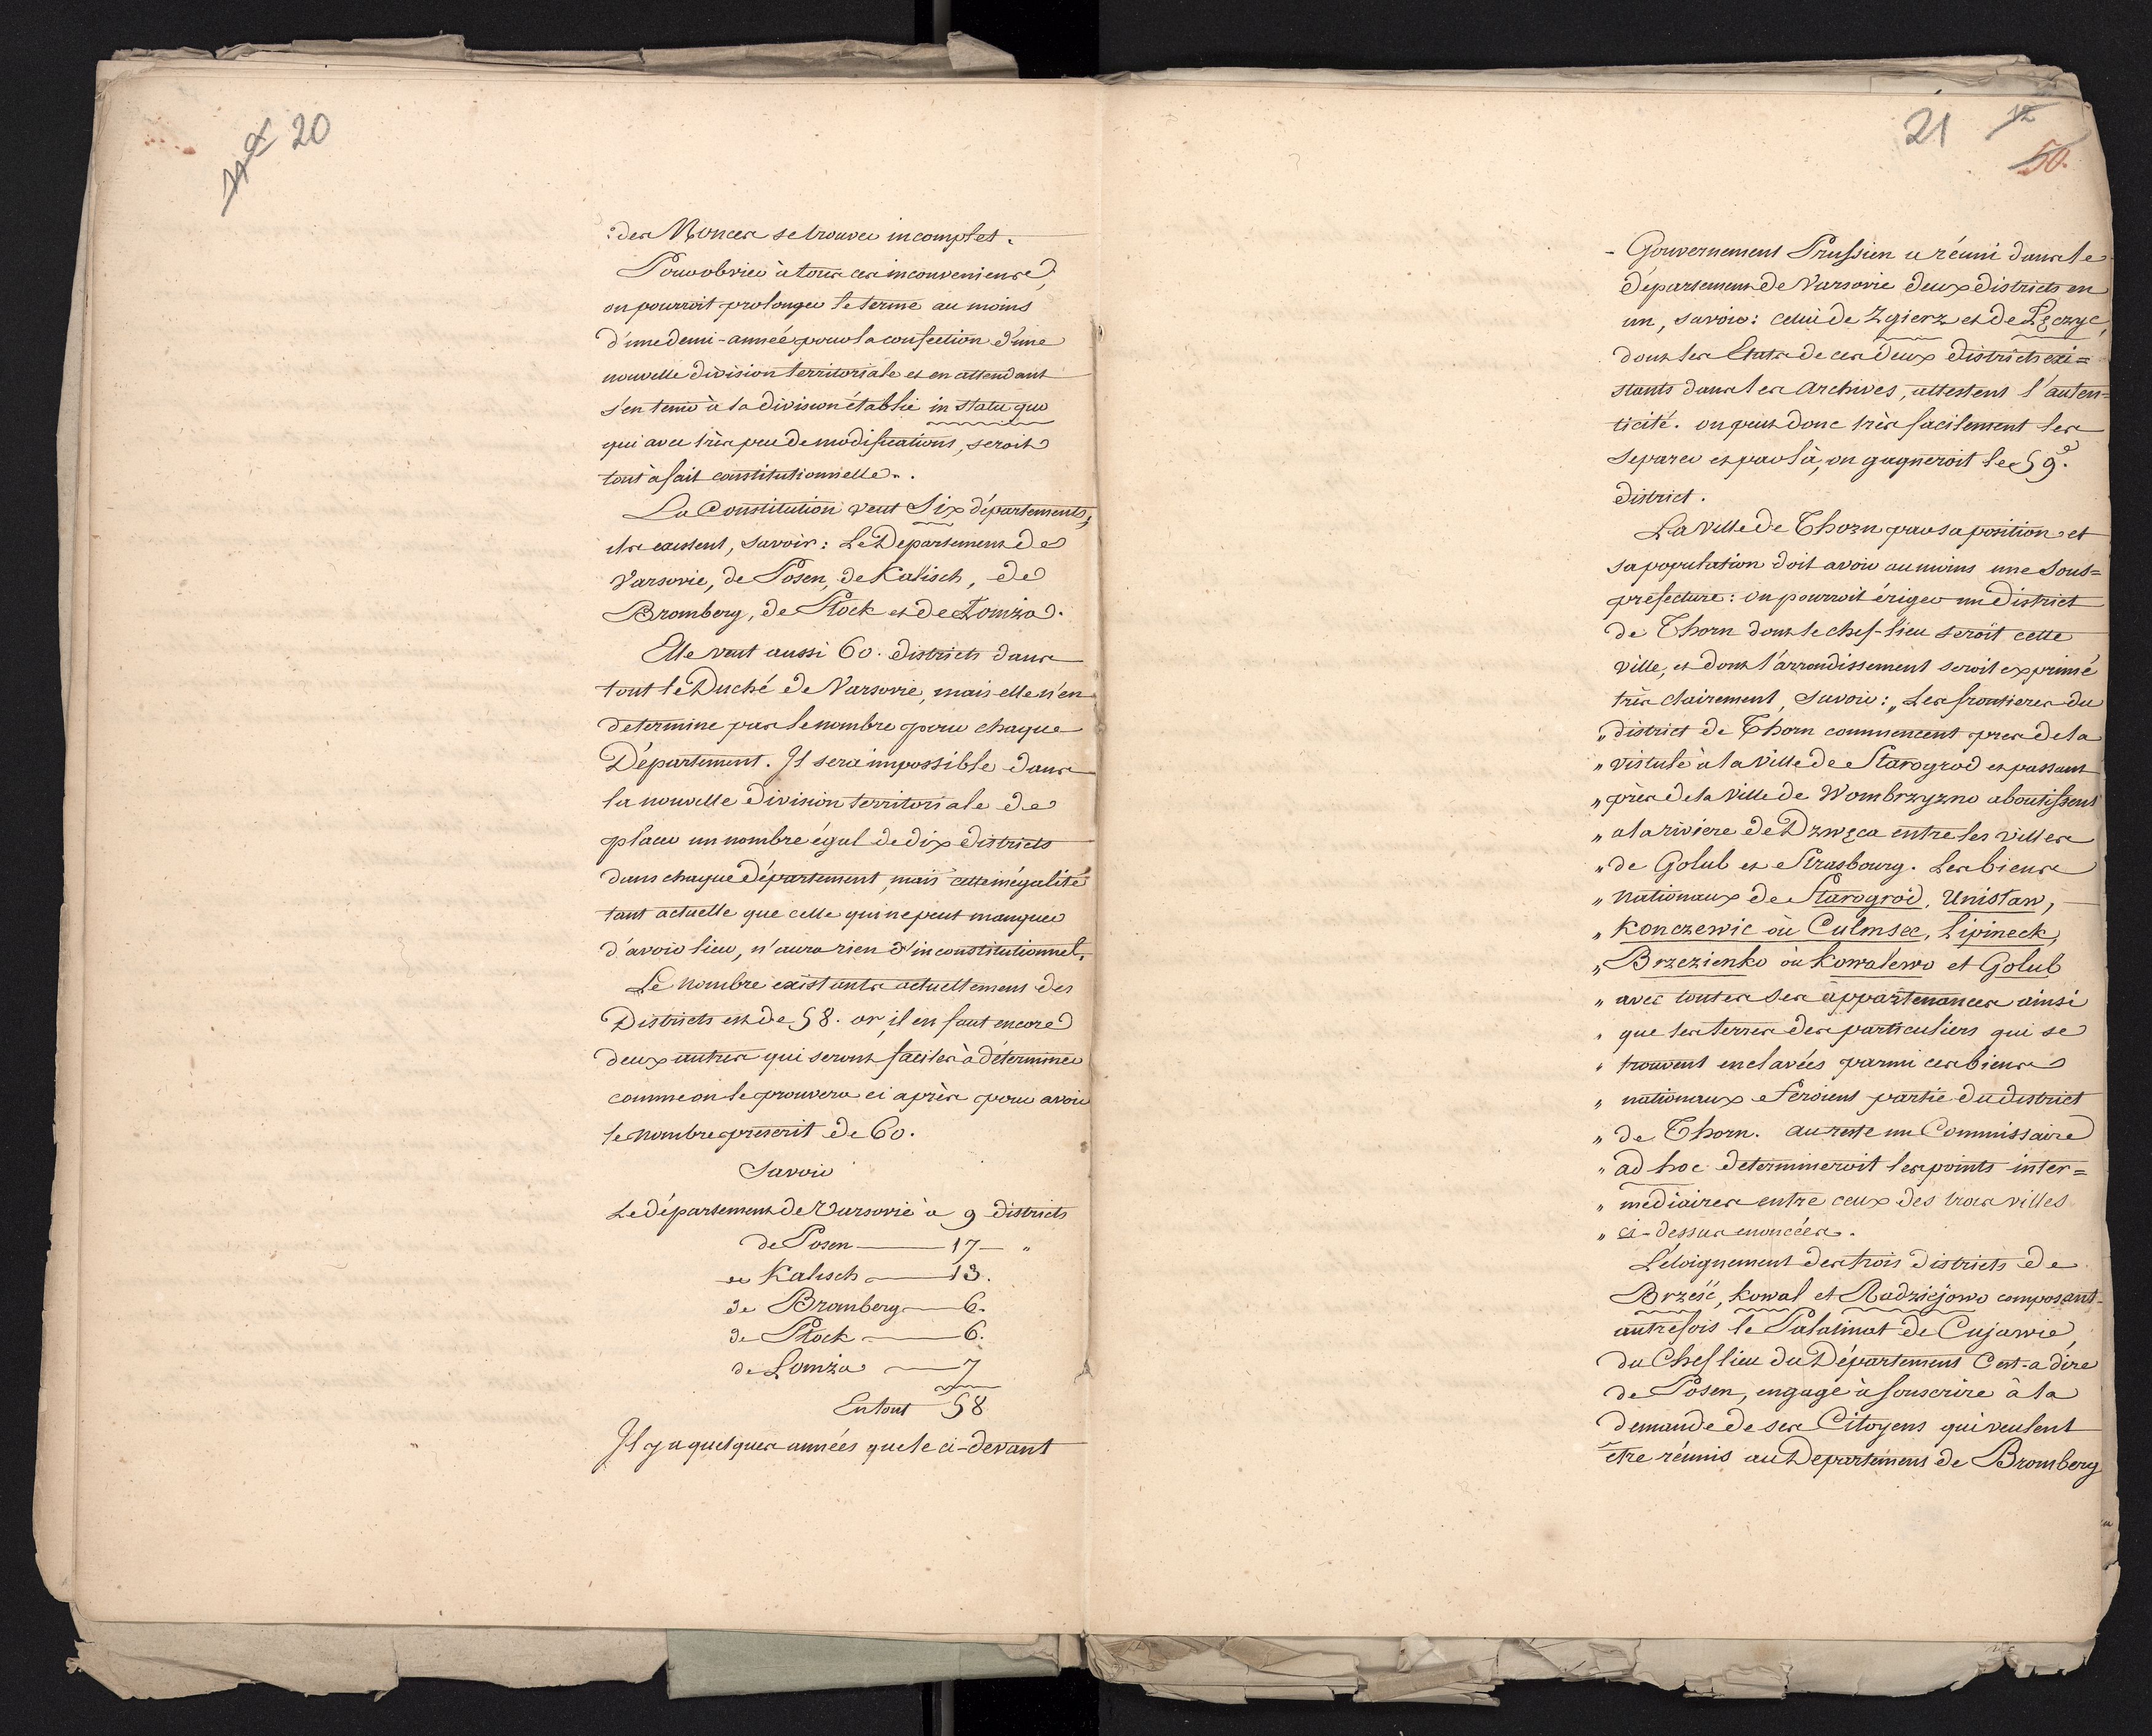 20
des Nonces se trouver incomplet.
Pour obvier à tous ces inconveniens,
on pourroit prolonger le terme au moins
d'une demi-année pour la confection d'une
nouvelle division territoriale et en attendant
s'en tenir à la division établie in statu quo
qui avec très peu de modifications, seroit
tout à fait constitutionnelle.
La Constitution veut Six départements,
ils existent, savoir: Le Departement de
Varsovie, de Posen, de Kalisch, de
Bromberg, de Plock et de Lomza.
Elle veut aussi 60. districts dans
tout le Duché de Varsovie, mais elle n'en
determine pas le nombre pour chaque
Département. Il sera impossible dans
la nouvelle division territoriale de
placer un nombre égal de dix districts
dans chaque Département, mais cette inégalité
tant actuelle que celle qui ne peut manquer
d'avoir lieu, n'aura rien d'inconstitutionnel.
Le nombre existants actuellement des
Districts est de 58. or, il en faut encore
deux autres qui seront faciles à déterminer
comme on le prouvera ci après pour avoir
le nombre prescrit de 60.
Savoir
Le département de Varsovie a 9 districts
de Posen — 17 — "
de Kalisch — 13.
de Bromberg — 6.
de Plock — 6.
de Lomza — 7
En tout 58
Il y a quelques années que le ci-devant
21 12
50.
- Gouvernement Prussien a réuni dans le
département de Varsovie deux districts en
un, savoir: celui de Zgierz et de Łęczyc,
dont les Etats de ces deux districts exi=
stants dans les archives, attestent l'auten=
ticité. on peut donc très facilement les
separer et par là, on gagneroit le 59e.
district.
La ville de Thorn par sa position et
sa population doit avoir au moins une Sous=
prefecture: on pourroit ériger un District
de Thorn dont le chef-lieu seroit cette
ville, et dont l'arrondissement seroit exprimé
très clairement, savoir: „ Les frontieres du
„ district de Thorn commencent près de la
„ vistule à la Ville de Starogrod et passant
„ près de la Ville de Wombrzyzno aboutissent
„ a la riviere de Drwęca entre les villes
„ de Golub et Strasbourg. Les biens
„ nationaux de Starogrod, Unislaw,
„ Konczewic où Culmsee, Lipineck,
„ Brzezienko où Kowalewo et Golub
„ avec toutes ses appartenances ainsi
„ que les terres des particuliers qui se
„ trouvent enclavées parmi ces biens
„ nationaux Feroient partie du district
„ de Thorn. au reste un Commissaire
„ ad hoc determineroit les points inter=
„ mediaires entre ceux des trois villes
„ ci-dessus enoncées.
L'éloignement des trois districts de
Brześć, Kowal et Radziejowo composant
autrefois le Palatinat de Cujawie,
du Chef lieu du Département C'est-a dire
de Posen, engage à souscrire à la
demande de ses Citoyens qui veulent
etre réunis au Departement de Bromberg